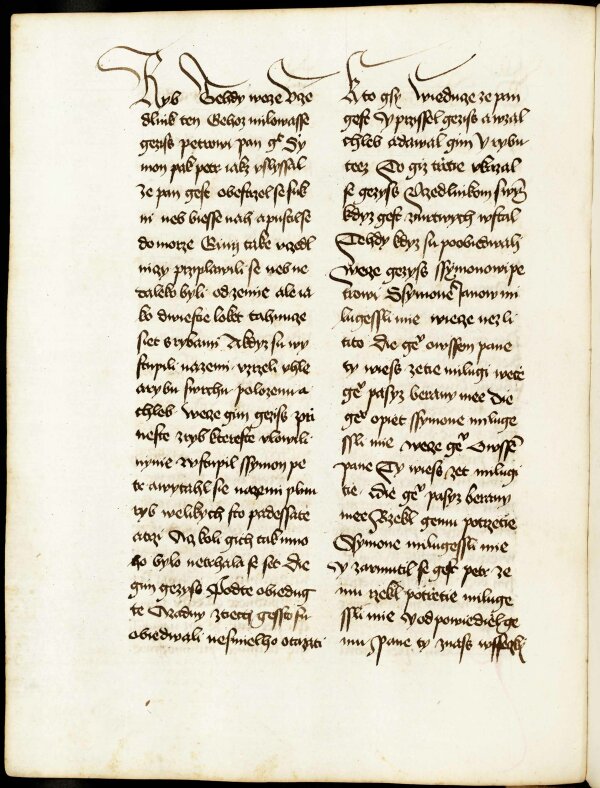 Ryb Tehdy weze Vze
dlnik ten Gehoz milowasse
gezis petrowi pan gt Sy
mon pak petr iakz vslyssal
ze pan gest obestrzel se suk
ni neb biesse nah a pustil se
do morze Ginij take vczedl
niczy przyplawili se neb ne
daleko byli od zemie ale ia
ko dwiestie loket tahnucze
siet s rybami A kdyz su wy
stupili na zemi vzrzeli vhle
a rybu swrchu polozenu a
chleb weze gim gezis przi
neste zryb kterezte vlowili
nynie wstupil ssymon pe
tr a wytahl sie na zemi plnu
ryb welikych sto padessate
a trzi A koli gich tak mno
ho bylo netrhala se set Die
gim gezys Podte obiedug
te A zadny z tiech gessto su
obiedwali nesmielho otazati
Kto gsy Wieduze ze pan
gest Y przissel gezis a wzal
chleb a dawal gim y rybu
teez To giz trzetie vkazal
se gezyss Vczedlnikom swym
kdyz gest zmrtwych wstal
Tehdy kdyz su poobiedwali
weze gezyss ssymonowi pe
trowi Ssymone Janow mi
lugessli mie wieze nezli
tito Die ge owssem pane
ty wiess zet tie milugi weze
ge pasyz berany mee Die
ge opiet ssymone miluge
ssli mie weze ge Owssem
pane Ty wiess zet milugi
tie Die ge pasyz berany
mee Rzekl gemu potrzetie
Ssymone milugessli mie
y zarmutil se gest petr ze
mu rzekl potrzetie miluge
ssli mie y odpowiediel ge
mu Pane ty znass wssezky